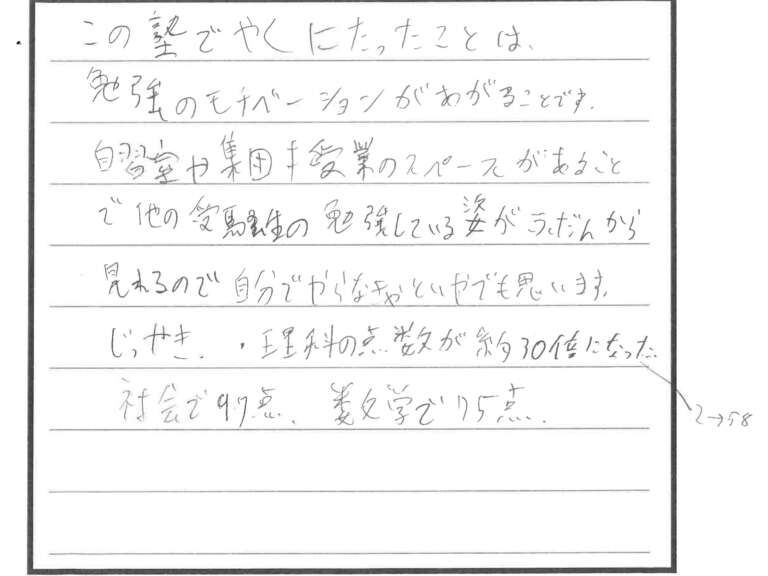 この塾でやくにたったことは、
勉強のモチベーションがあがることです。
自習室や集団授業のスペースがあること
で他の受験生の勉強している姿がふだんから
見れるので自分でやらなきゃといやでも思います。
じっせき、・理科の点数が約30倍になった
2→58
社会で97点、数学で75点、